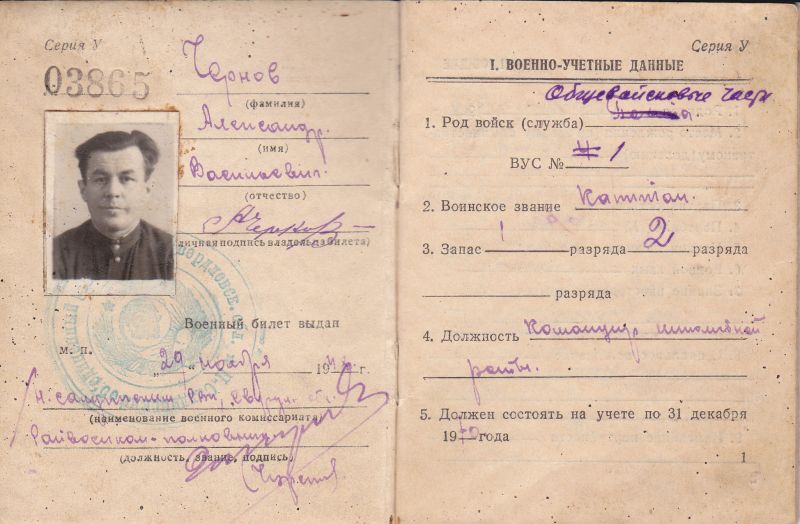 Серия У
03865
Чернов
(фамилия)
Александр
(имя)
Васильевич
(отчество)
АЧернов
(личная подпись владельца билета)
Военный билет выдан
м. п.
„29“ ноября 19 г.
(наименование военного комиссариата)
Райвоенком-полковник
(должность, звание, подпись)
Серия У
I. ВОЕННО-УЧЕТНЫЕ ДАННЫЕ
Общевойсковые части
1. Род войск (служба)
ВУС № 1
2. Воинское звание Капитан.
3. Запас 1 разряда 2 разряда
разряда
4. Должность Командир штабной
роты.
5. Должен состоять на учете по 31 декабря
19 года
1